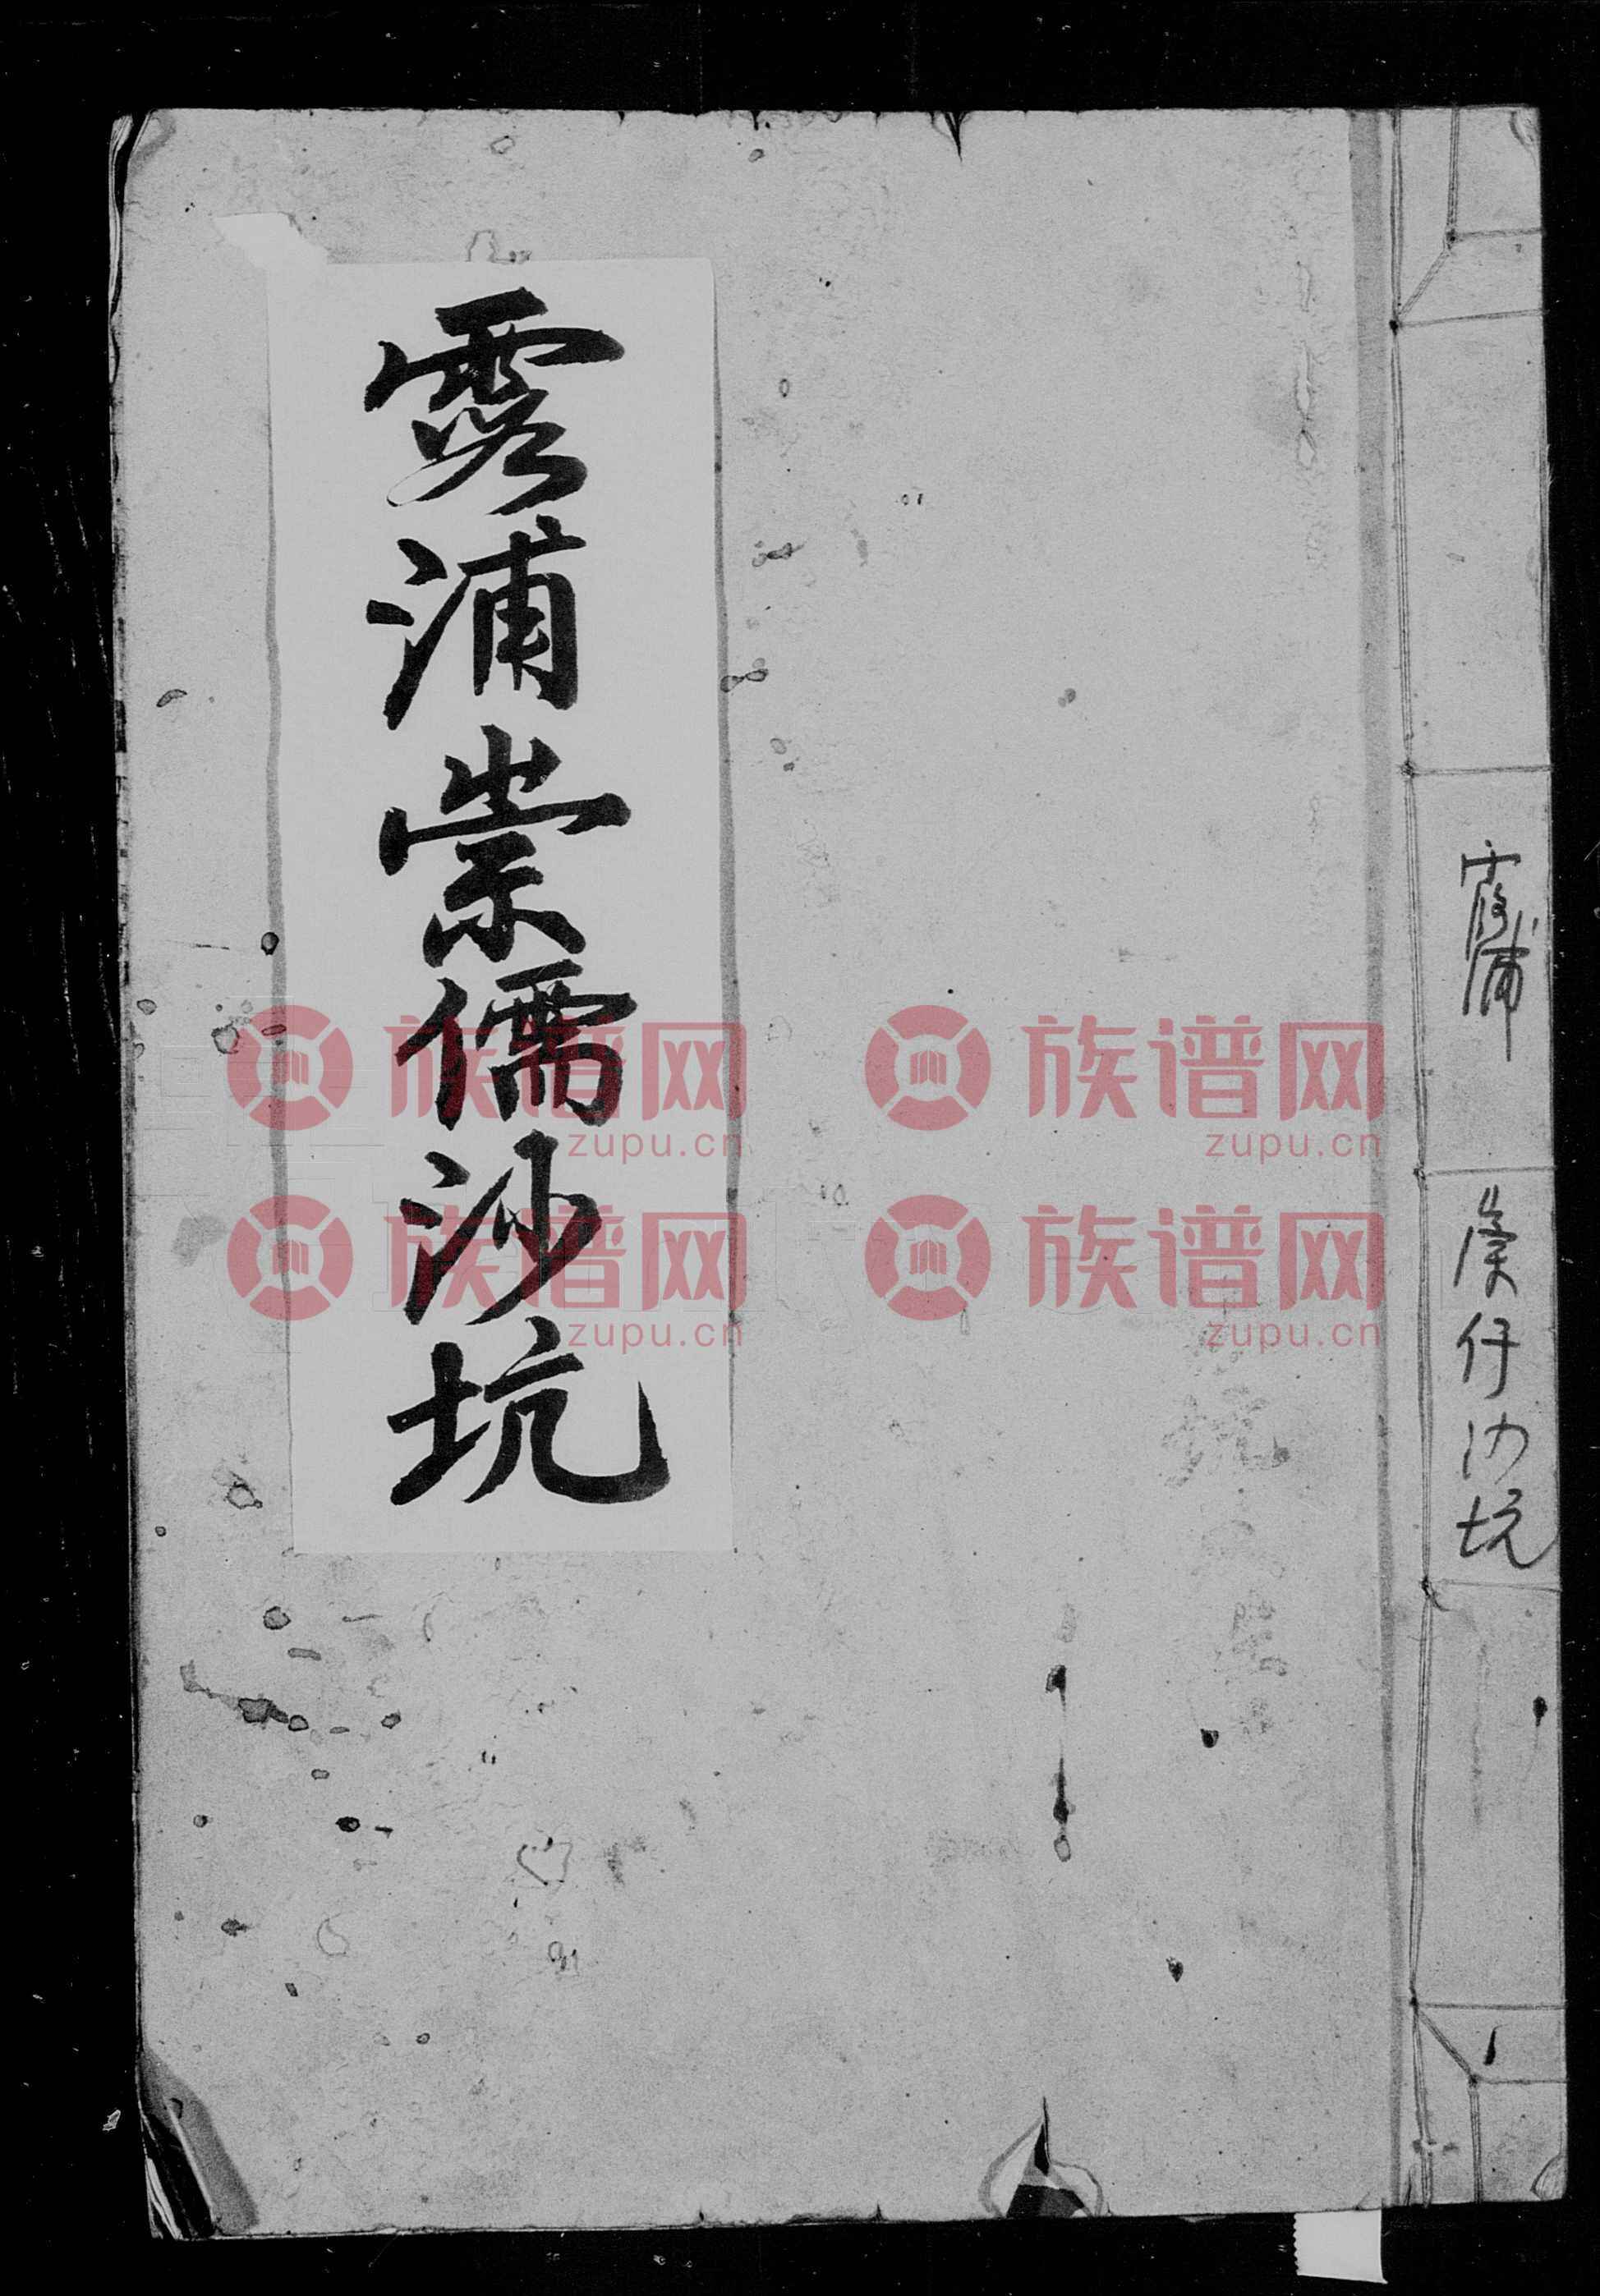 霞浦
崇仔沙坑
霞浦崇儒沙坑
族谱网
zupu.cn
族谱网
zupu.cn
族谱网
zupu.cn
族谱网
zupu.cn